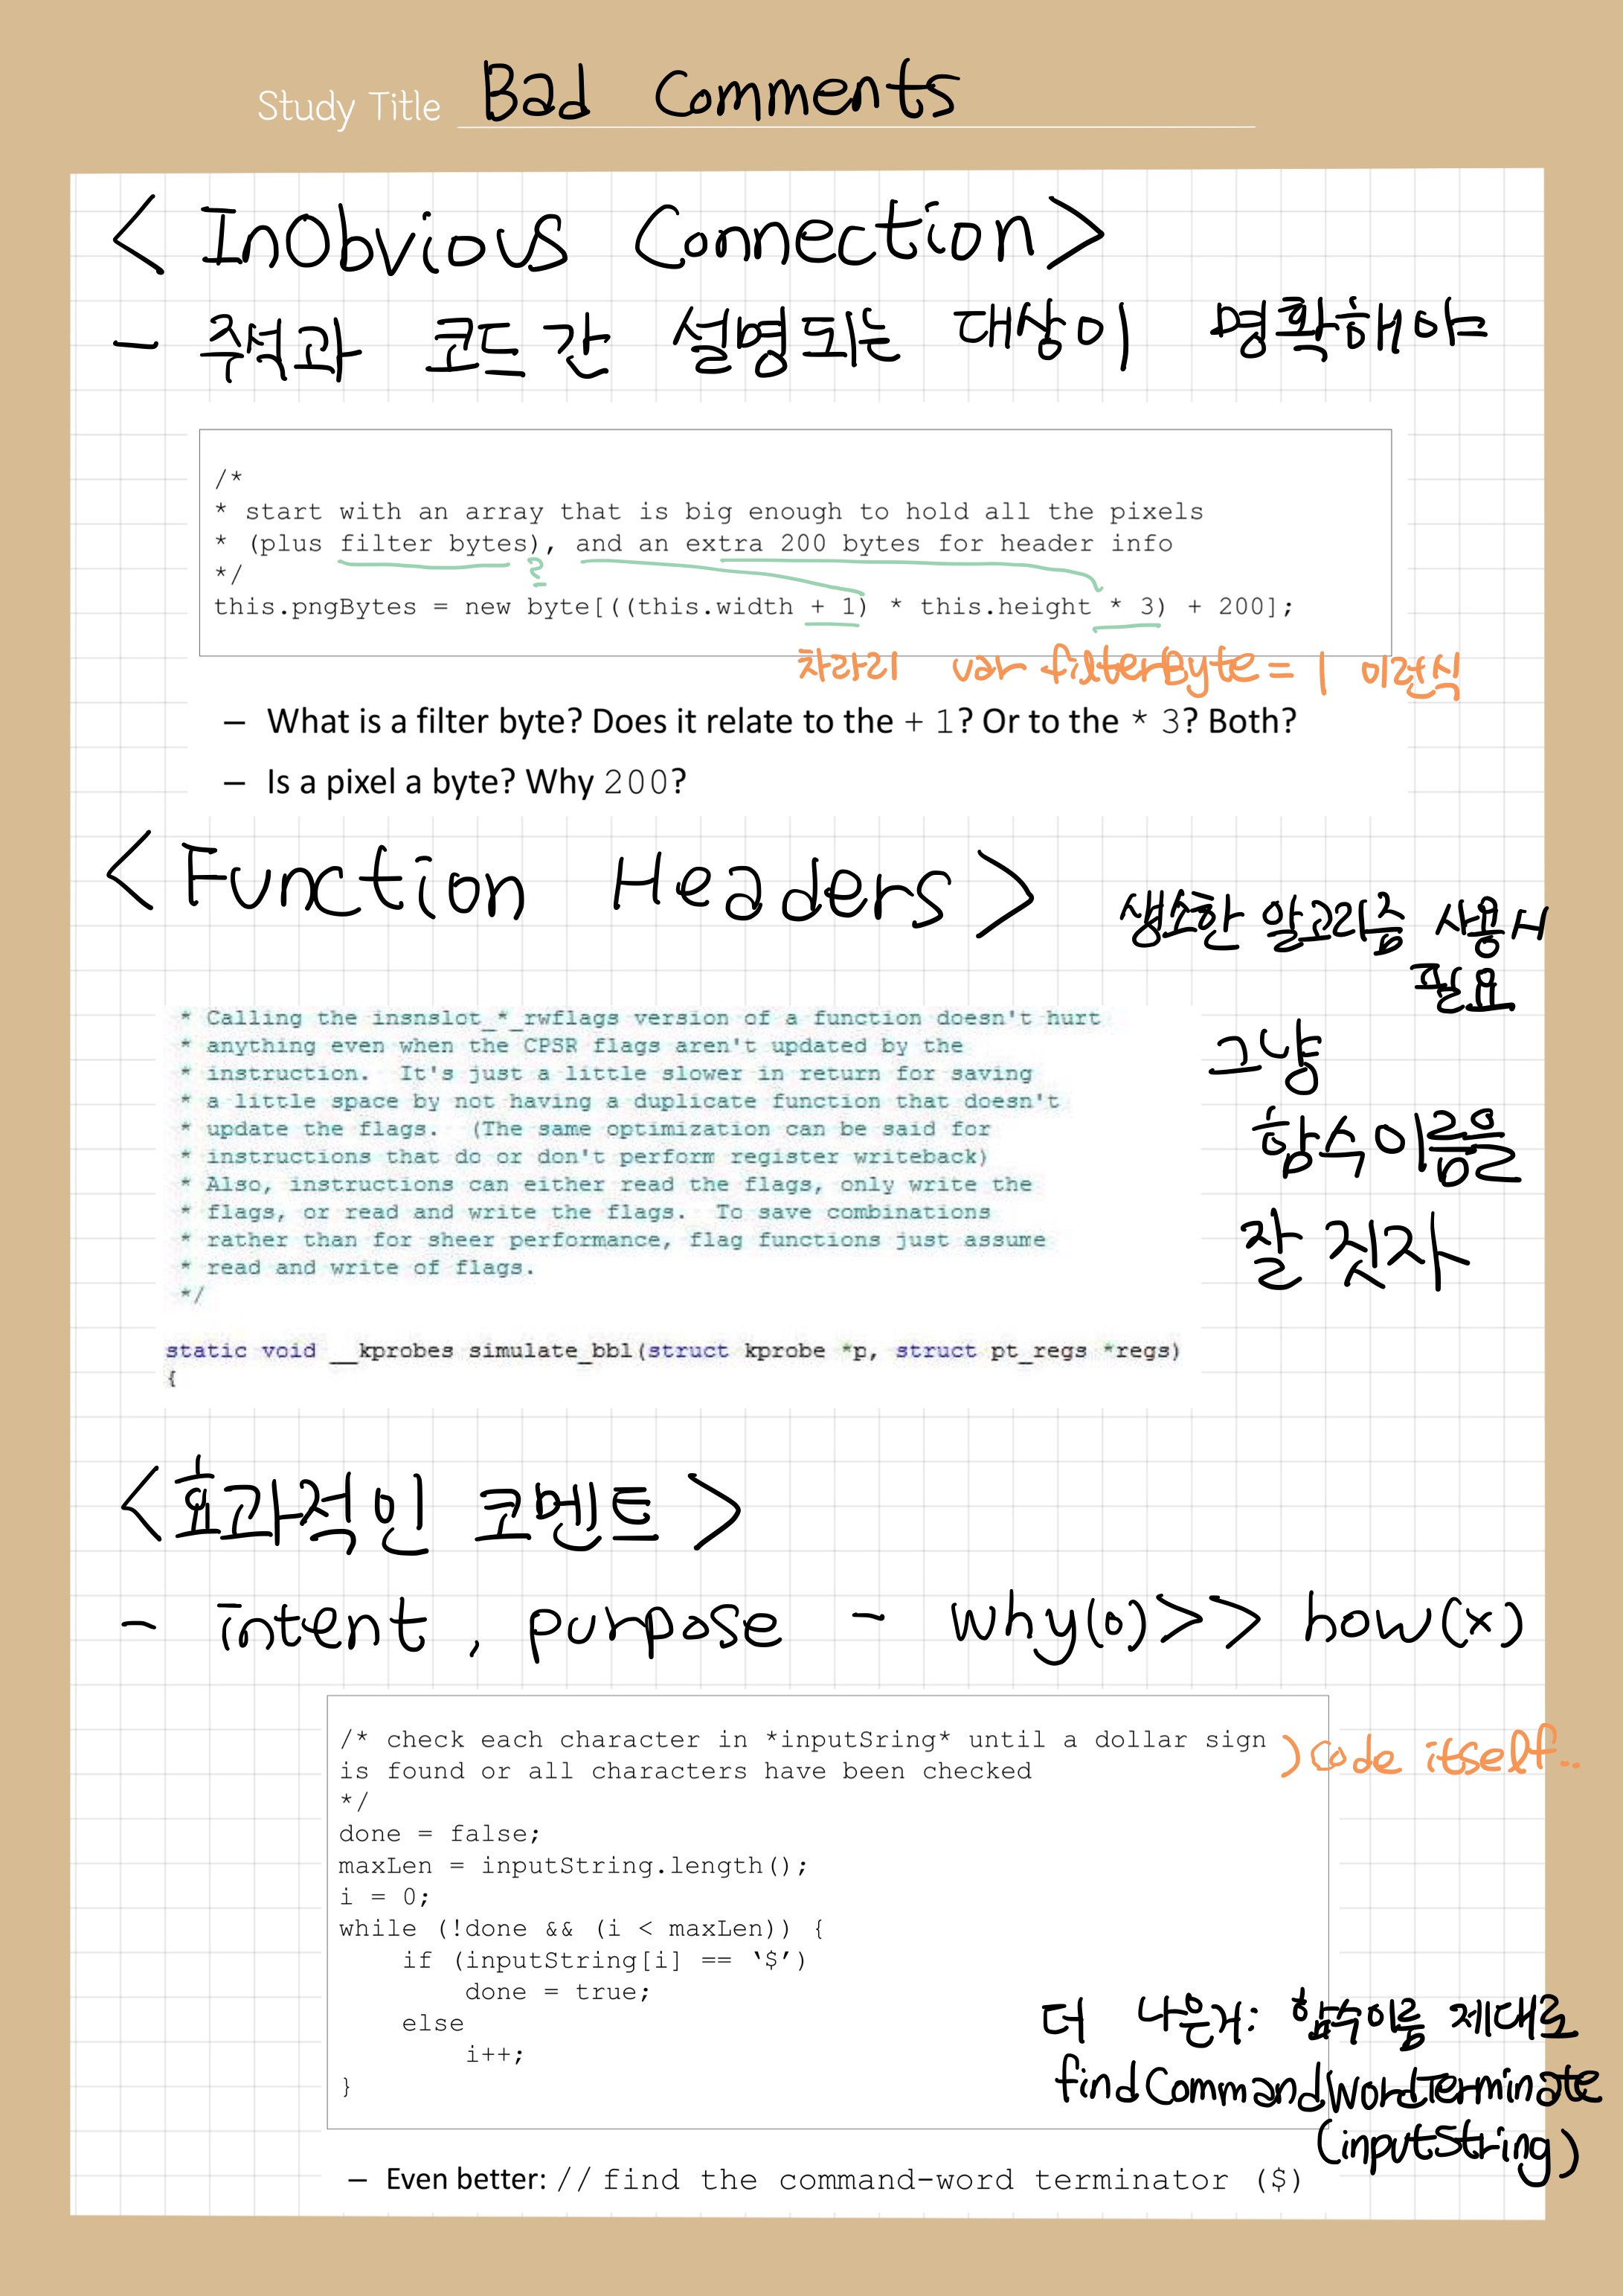 Study Title Bad Comments
< InObvious Connection>
- 주석과 코드간 설명되는 대상이 명확해야
/*
* start with an array that is big enough to hold all the pixels
* (plus filter bytes), and an extra 200 bytes for header info
?
*/
this.pngBytes = new byte[((this.width + 1) * this.height * 3) + 200];
차라리 var filterByte = 1 이런식
– What is a filter byte? Does it relate to the + 1? Or to the * 3? Both?
– Is a pixel a byte? Why 200?
< Function Headers >
생소한 알고리즘 사용시
필요
* Calling the insnslot_*_rwflags version of a function doesn't hurt
* anything even when the CPSR flags aren't updated by the
* instruction.  It's just a little slower in return for saving
* a little space by not having a duplicate function that doesn't
* update the flags.  (The same optimization can be said for
* instructions that do or don't perform register writeback)
* Also, instructions can either read the flags, only write the
* flags, or read and write the flags.  To save combinations
* rather than for sheer performance, flag functions just assume
* read and write of flags.
*/
그냥
함수이름을
잘 짓자
static void __kprobes simulate_bbl(struct kprobe *p, struct pt_regs *regs)
{
<효과적인 코멘트>
- intent, purpose - why(o)>> how(x)
/* check each character in *inputSring* until a dollar sign
is found or all characters have been checked
*/
) Code itself..
done = false;
maxLen = inputString.length();
i = 0;
while (!done && (i < maxLen)) {
if (inputString[i] == ‘$’)
done = true;
else
i++;
}
더 나은거: 함수이름 제대로
findCommandWordTerminate
(inputString)
– Even better: // find the command-word terminator ($)